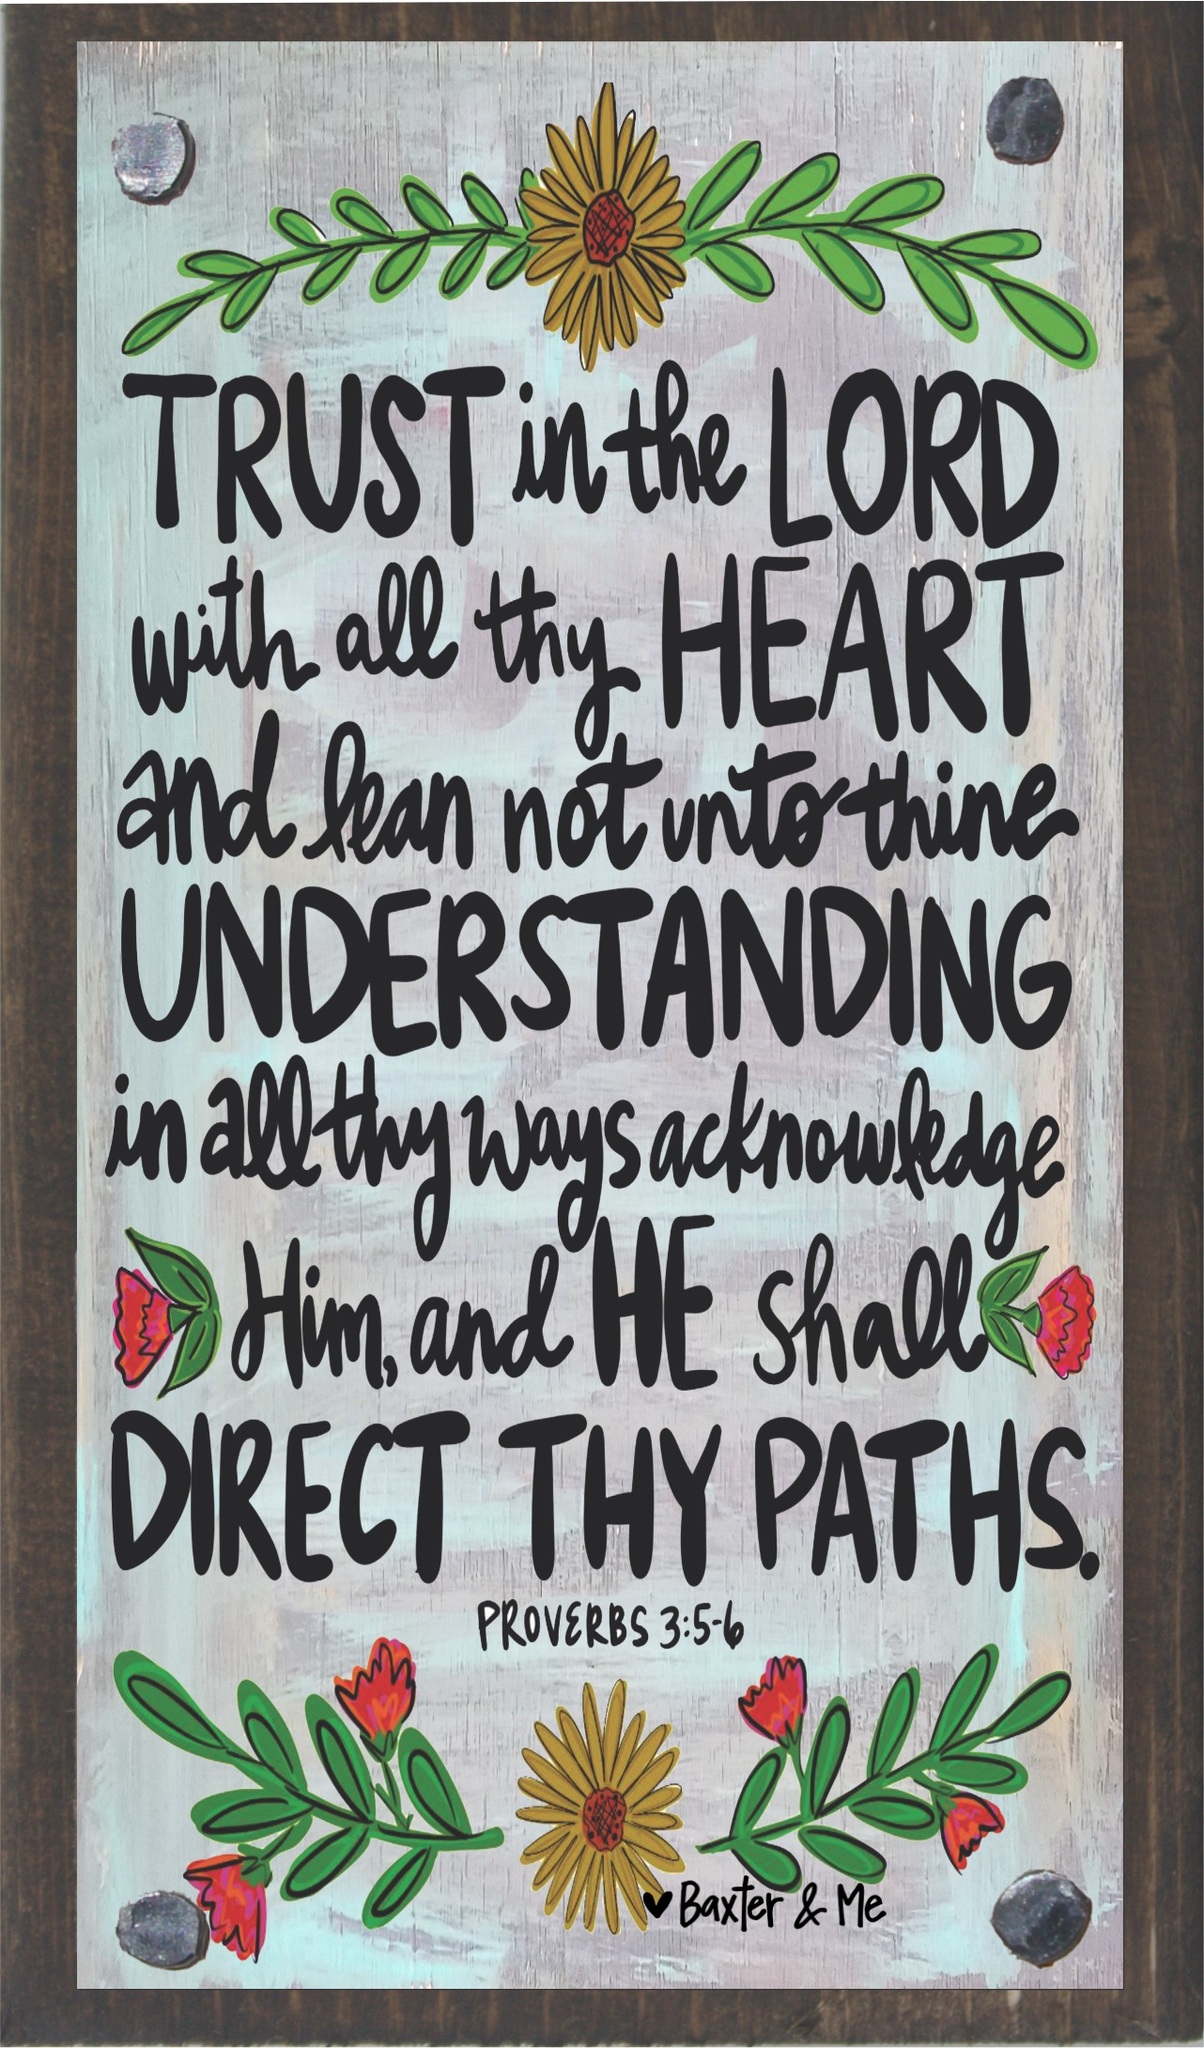 TRUST in the LORD
with all thy HEART
and lean not unto thine
UNDERSTANDING
in all thy ways acknowledge
Him, and HE shall
DIRECT THY PATHS.
PROVERBS 3:5-6
♥Baxter & Me